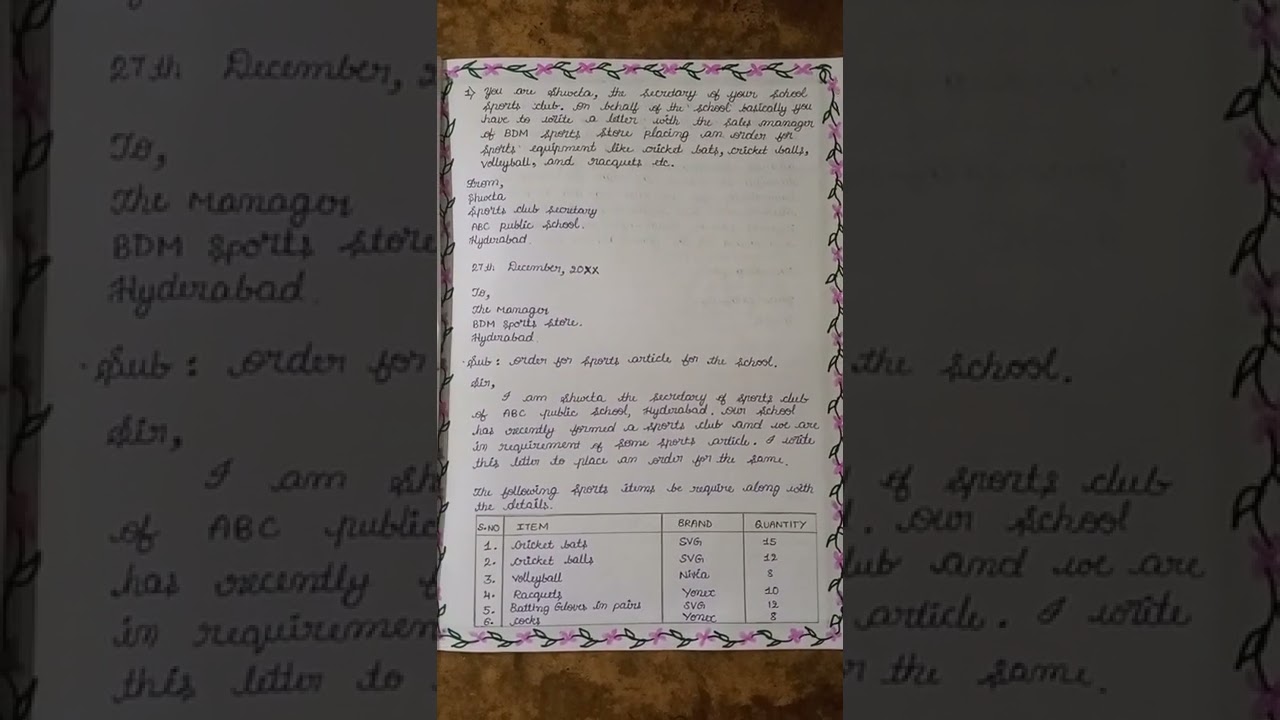 1) You are Shweta, the secretary of your school
sports club. On behalf of the school basically you
have to write a letter with the sales manager
of BDM sports store placing an order for
sports equipment like cricket bats, cricket balls,
volleyball, and racquets etc.
From,
Shweta
Sports club secretary
ABC public school.
Hyderabad.
27th December, 20XX
To,
The Manager
BDM Sports Store.
Hyderabad.
Sub: order for sports article for the school.
Sir,
I am Shweta the secretary of sports club
of ABC public school, Hyderabad. Our school
has recently formed a sports club and we are
in requirement of some sports article. I write
this letter to place an order for the same.
The following sports items be require along with
the details.
S.NO ITEM BRAND QUANTITY
1. Cricket bats SVG 15
2. Cricket balls SVG 12
3. Volleyball Nivia 8
4. Racquets Yonex 10
5. Batting Gloves in pairs SVG 12
6. Cocks Yonex 8